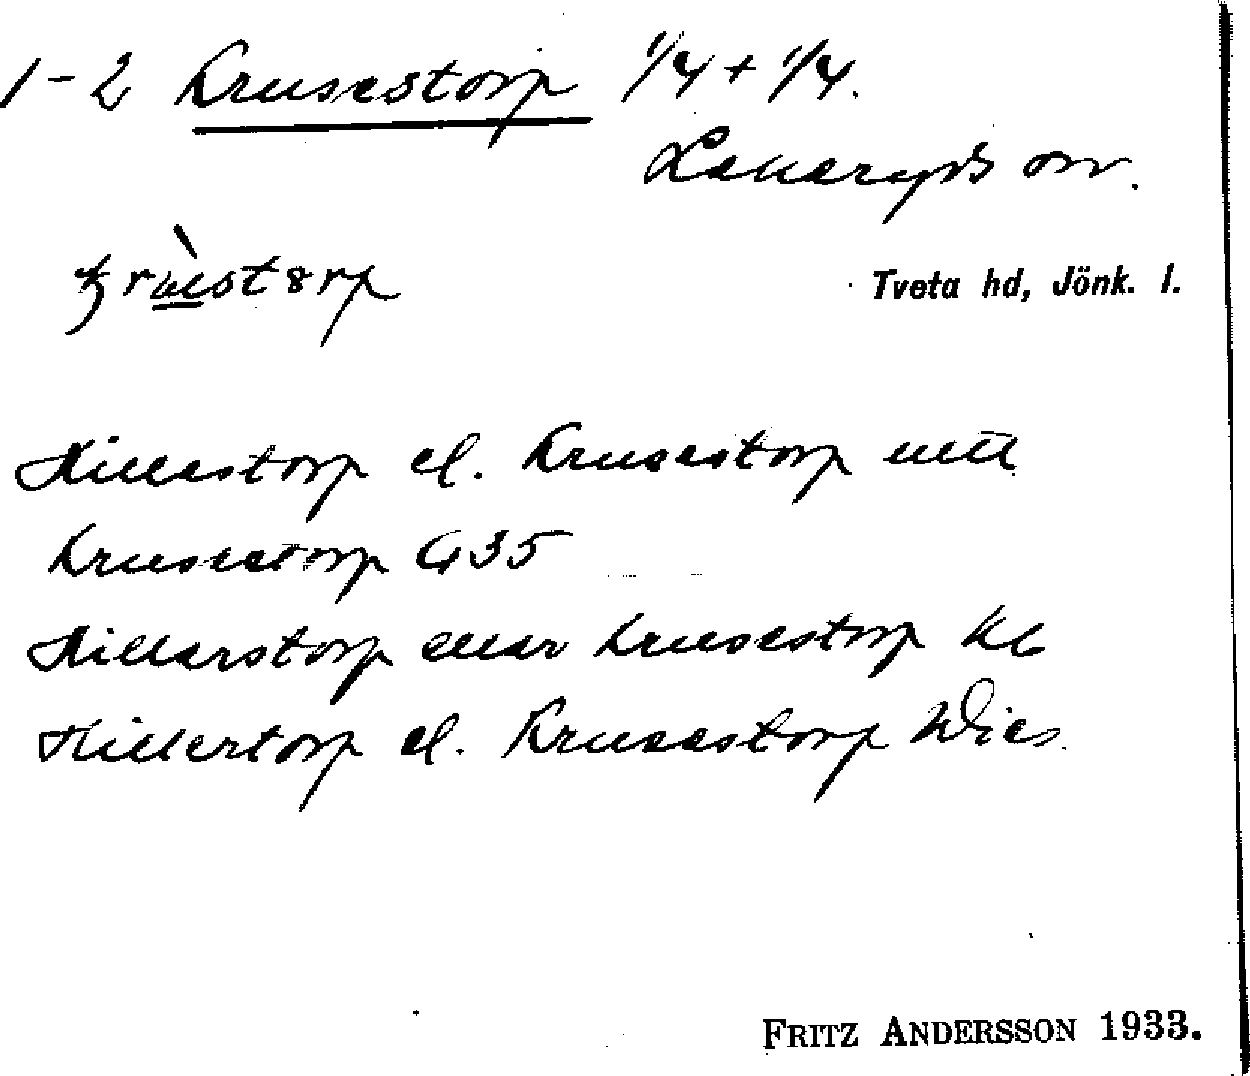 1-2 Krusestorp 1/4 + 1/4.
Lekeryds sn.
Tveta hd, Jönk. l.
Hillestorp el. Krusestorp
Krusestorp G35
Hillerstorp eller Krusestorp
Hillertorp el. Krusestorp
FRITZ ANDERSSON 1933.